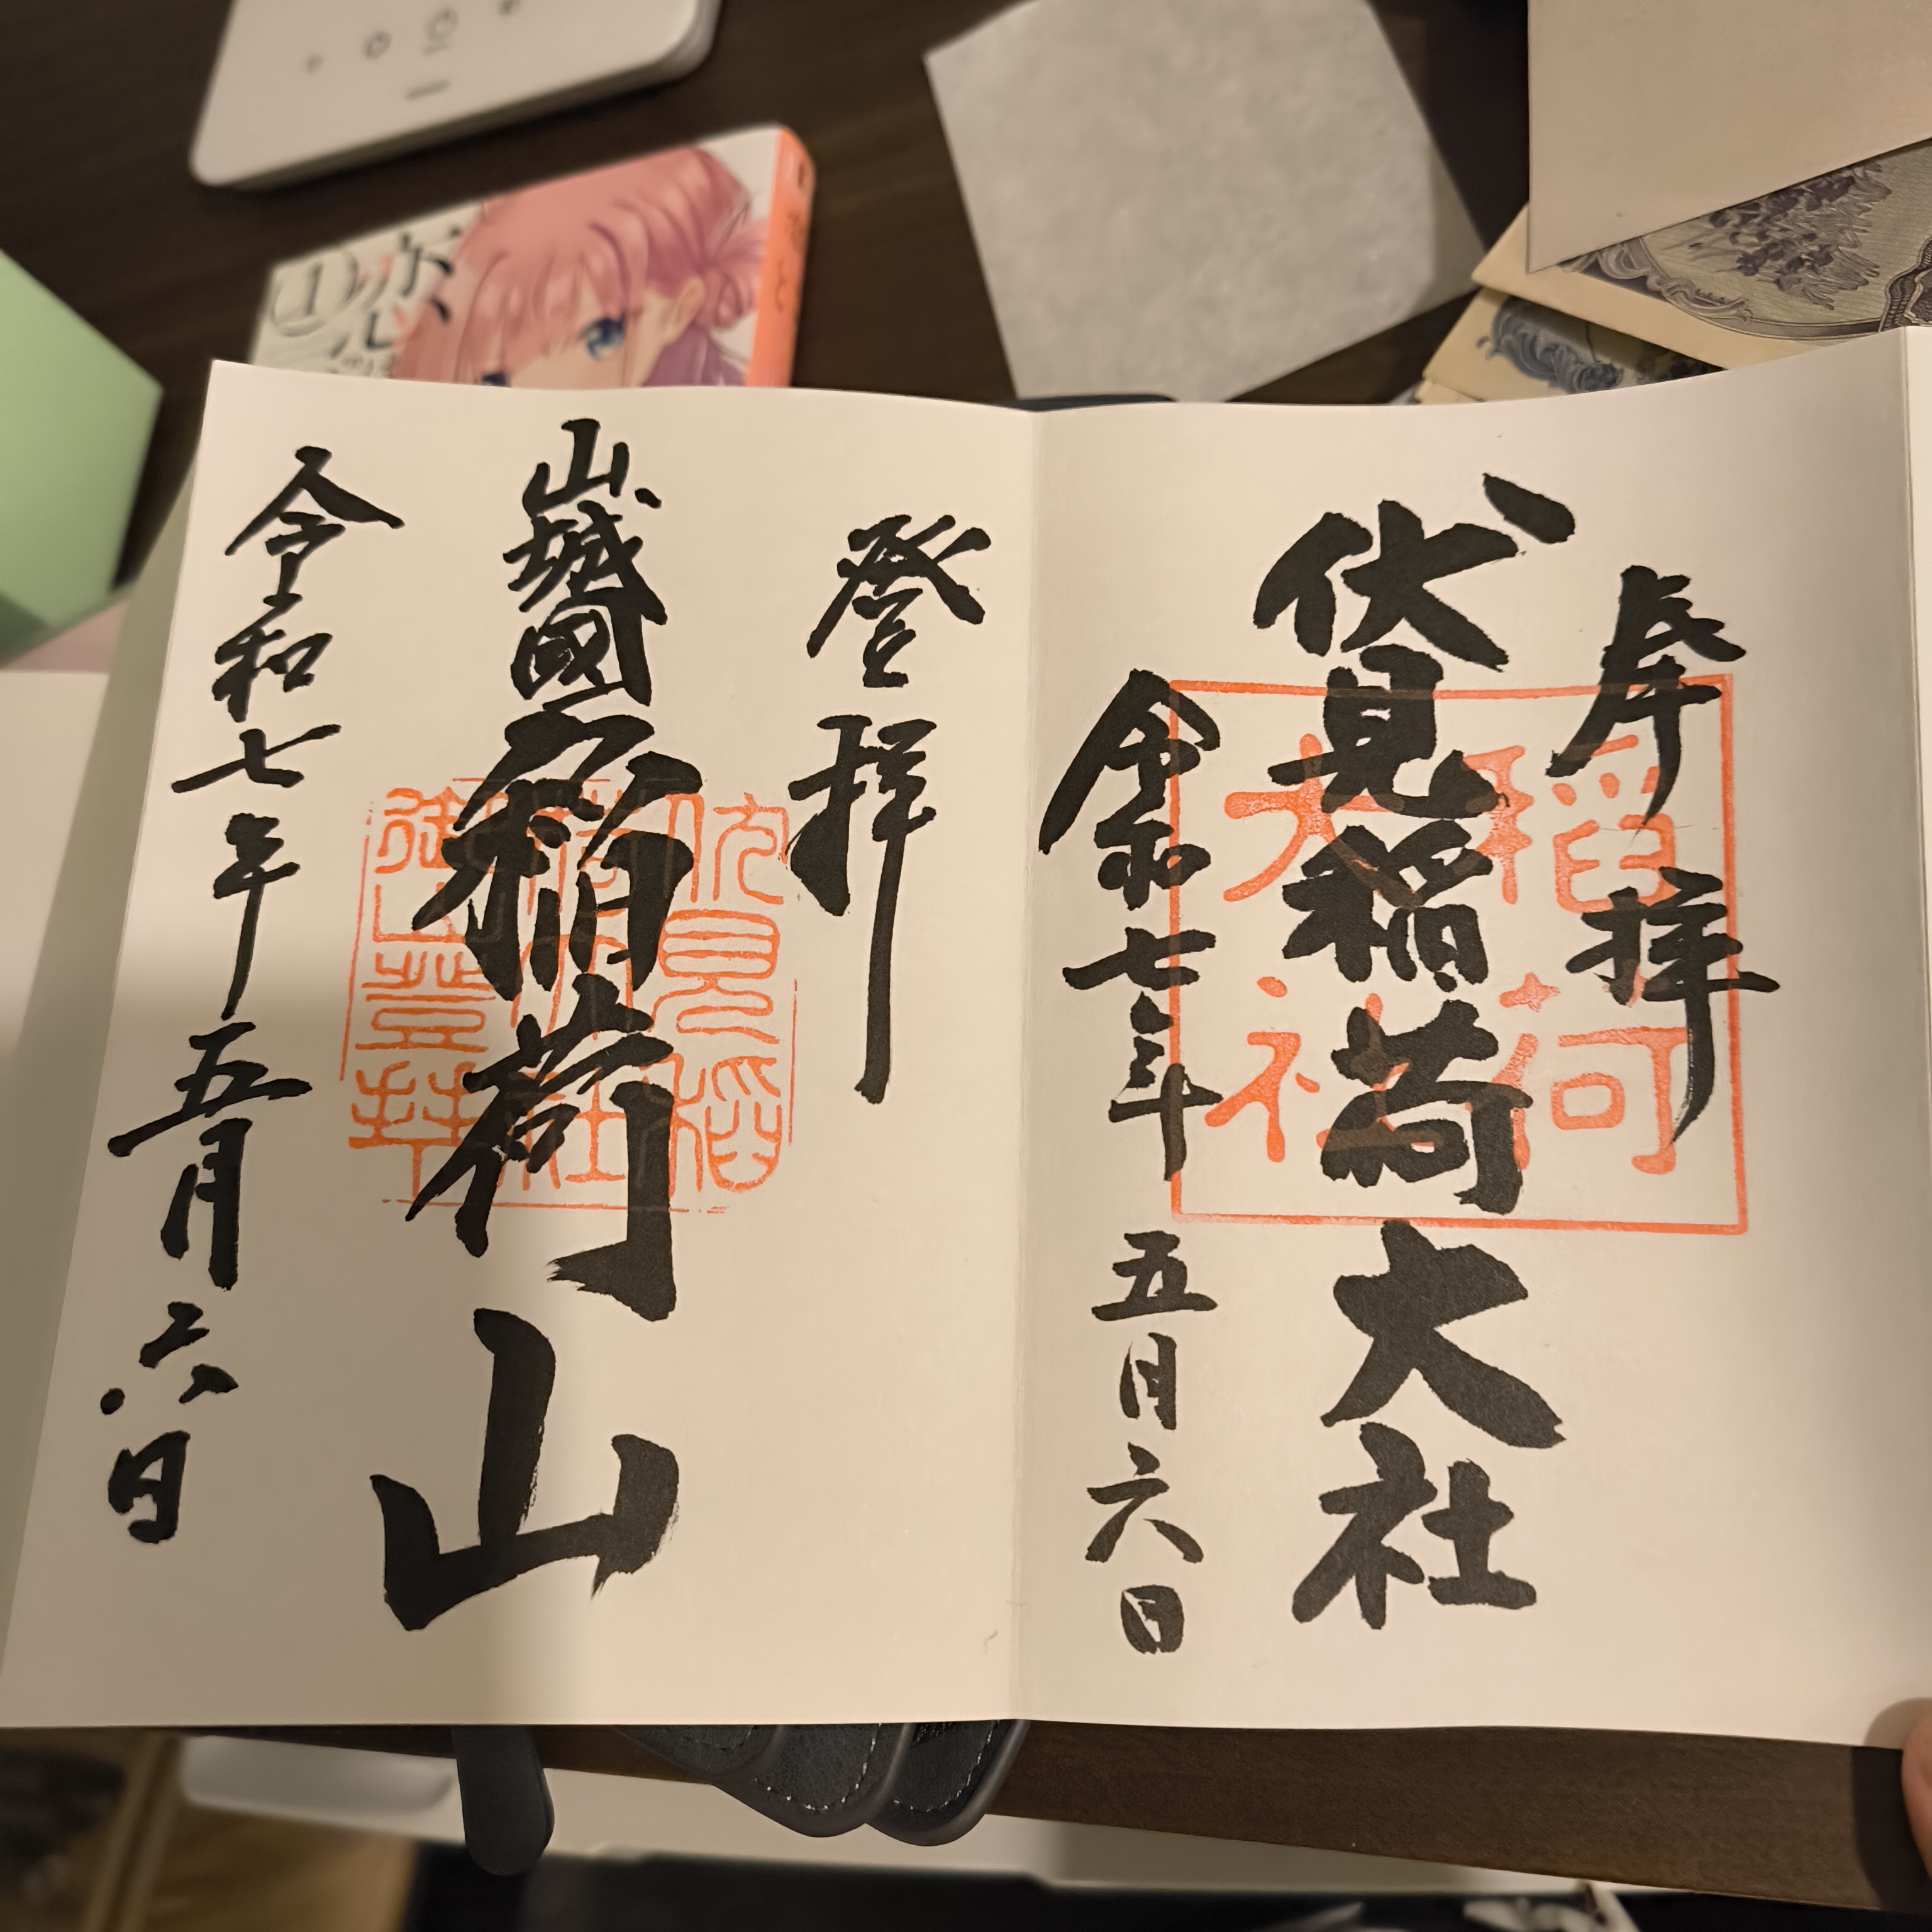 奉拝
伏見稲荷大社
令和七年五月六日
稲荷
大社
登拝
山城國
稲荷山
令和七年五月六日
伏見稲
荷大社
御山登拝
恋
1